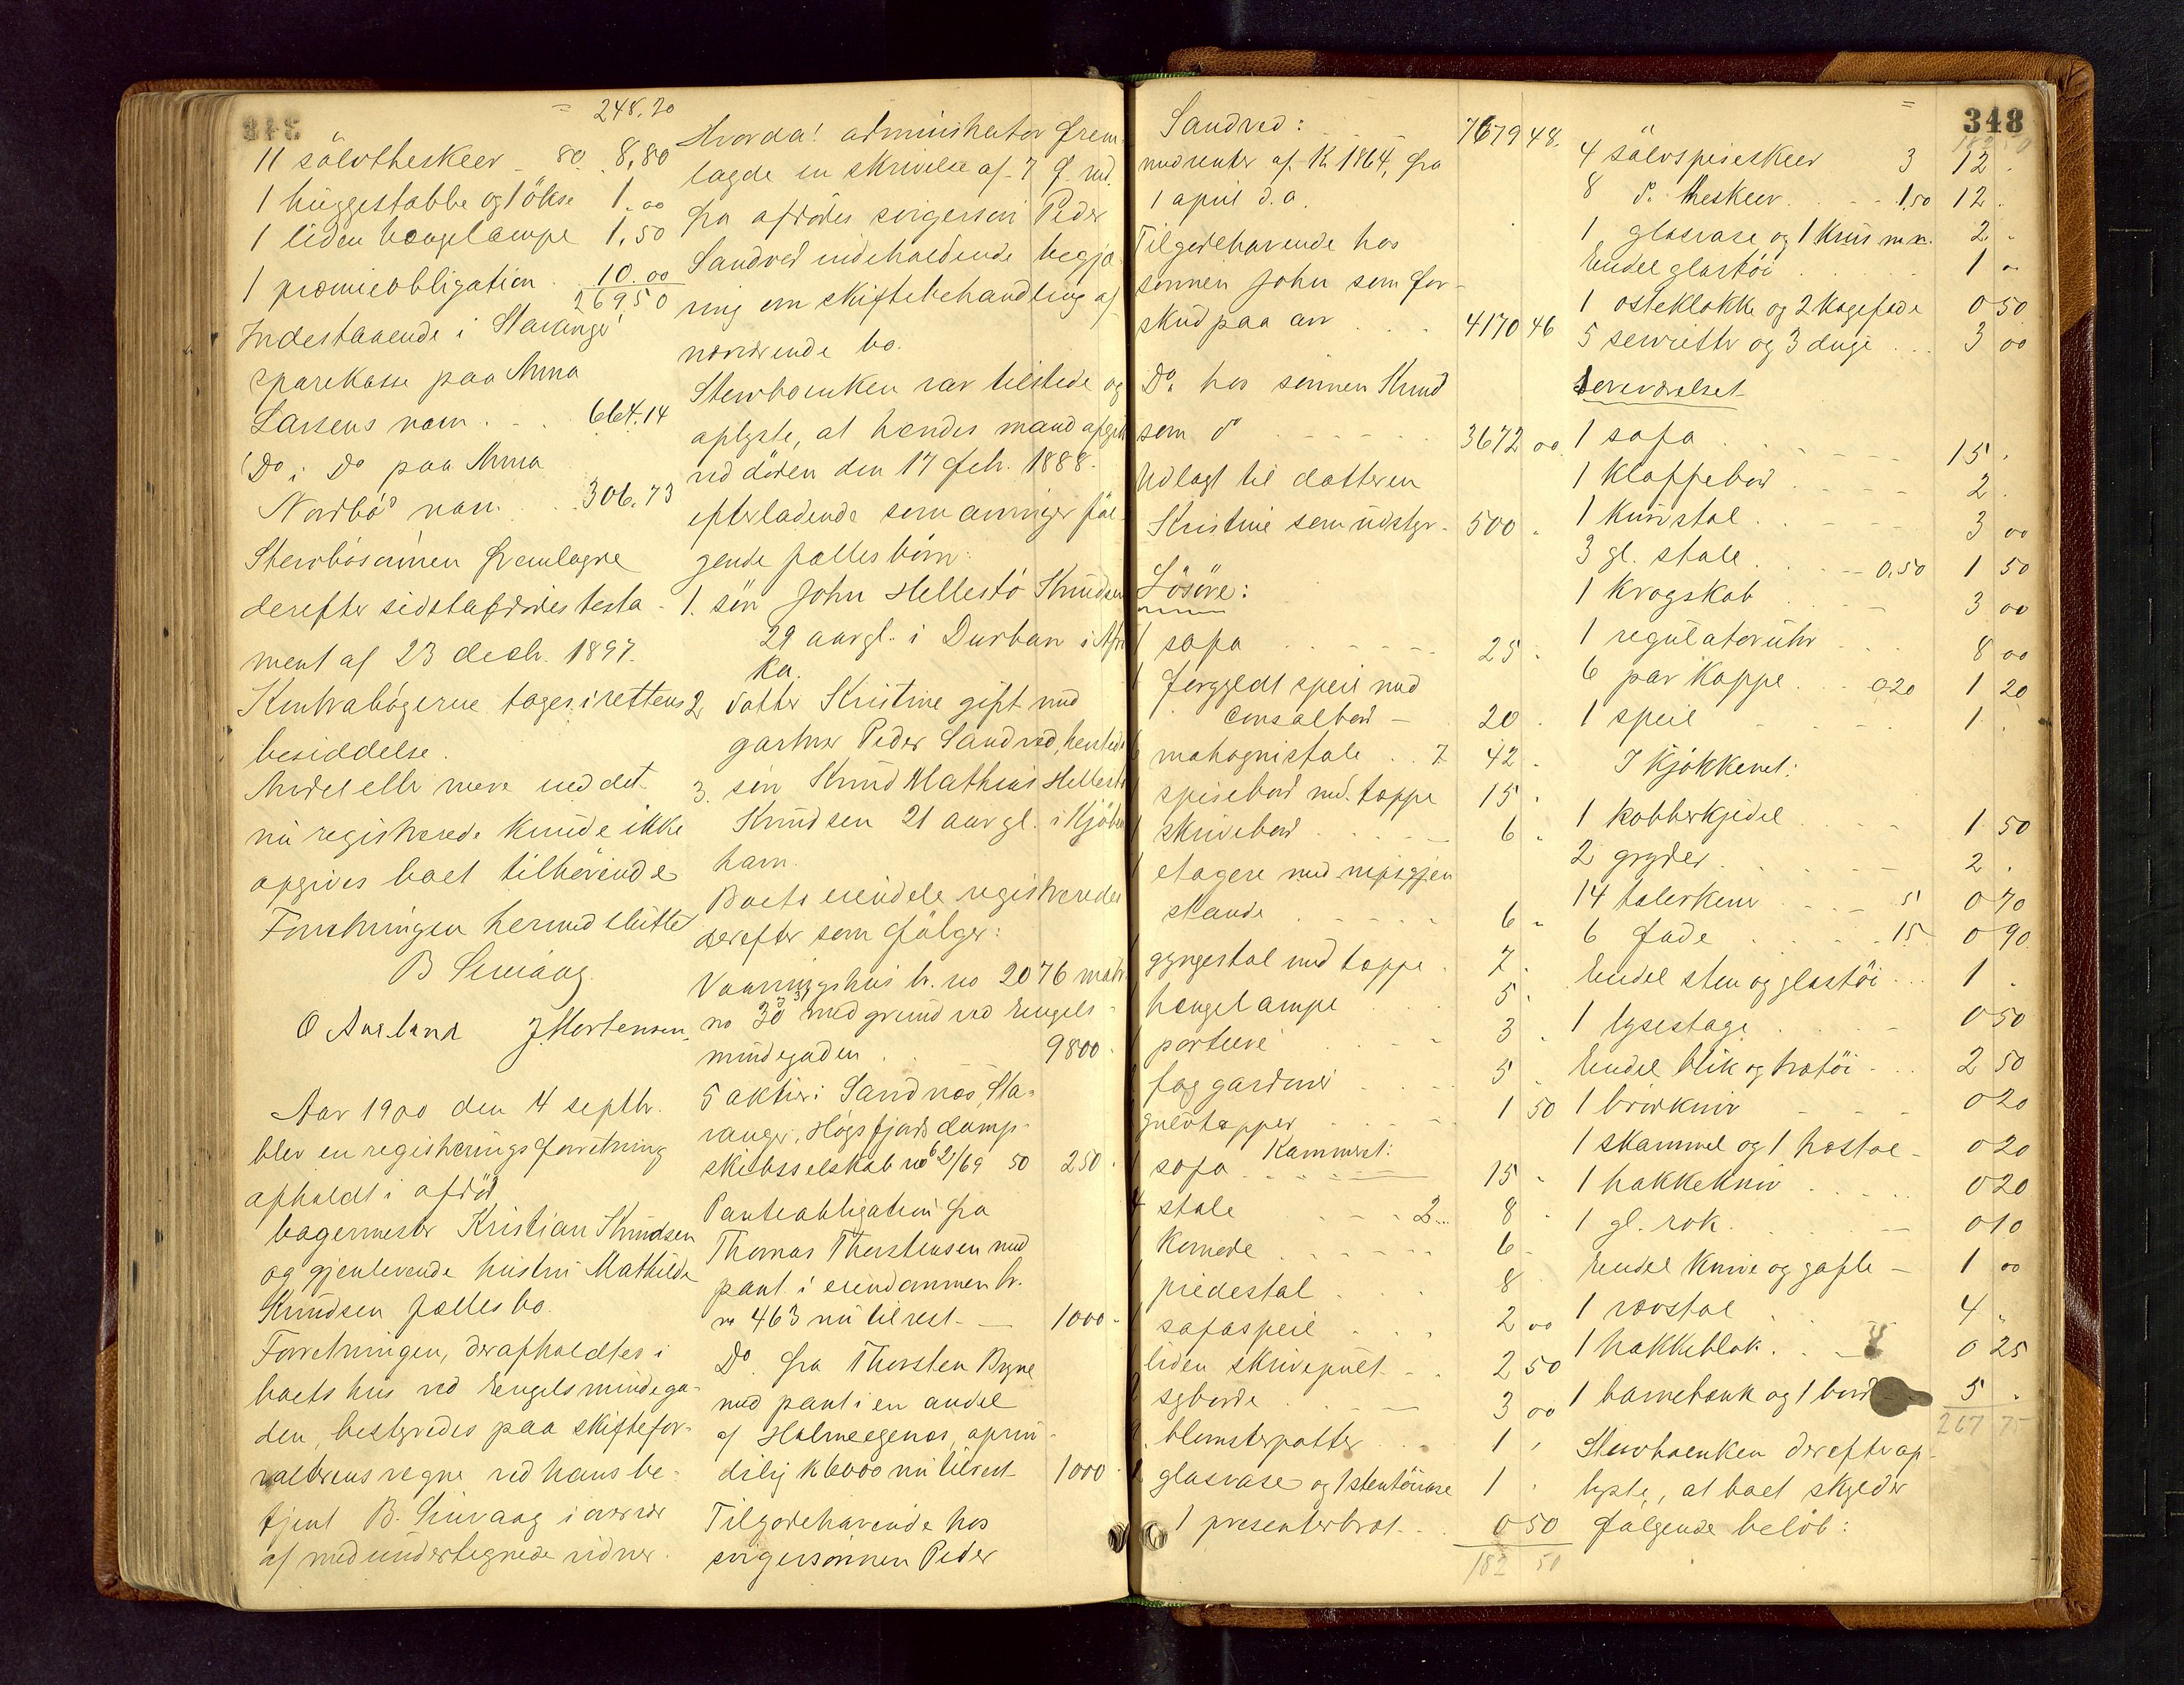 = 248.20
11 sölvtheskeer - 80. 8,80
1 huggestabbe og 1 ökse 1.00
1 liden hængelampe 1.50
1 præmieobligation . 10.00
26950
Indestaaende i Stavanger
sparekasse paa Anna
Larsens navn . . . 664.14
Do i Do paa Anna
Nordbö navn . . 306.73
Stervbosönnen fremlagde
derefter sidstafdödes testa-
ment af 23 decbr. 1897.
Kontrabögerne tages i rettens
besiddelse.
Andet eller mere end det
nu registrerede kunde ikke
opgives boet tilhörende
Forretningen hermed sluttet
B Sinvaag.
O Aarland J. Mortensen.
Aar 1900 den 4 septbr.
blev en registreringsforretning
afholdt i afdöd
bagermester Kristian Knudsen
og gjenlevende hustru Mathilde
Knudsen fælles bo.
Forretningen, der afholdtes i
boets hus ved Engelsmindega-
den, bestyredes paa skiftefor-
valterens vegne ved hans be-
tjent B. Sinvaag i overvær
af medundertegnede vidner.
Hvorda! administrator frem-
lagde en skrivelse af 7 f. md.
fra afdödes svigersön Peder
Sandved indeholdende begjæ-
ring om skiftebehandling af
nærværende bo.
Stervboenken var tilstede og
oplyste, at hendes mand afgik
ved döden den 17 febr. 1888.
efterladende som arvinger föl-
gende fælles börn:
1. sön John Hellestö Knudsen
29 aar gl. i Durban i Afri
ka.
2, datter Kristine gift med
gartner Peder Sandved, hersteds
3. sön Knud Mathias Hellestö
Knudsen 21 aar gl. i Kjöben
havn.
Boets eiendele registreredes
derefter som fölger:
Vaaningshus br. no 2076 matr
no 30 med grund ved Engels-
mindegaden . 9800.
5 aktier i Sandnæs, Sta-
vanger, Högsfjords damp-
skibsselskab no 62/69 50 250.
Panteobligation fra
Thomas Thorstensen med
pant i eiendommen br.
no 463 nu til rest - 1000.
Do. fra Thorsten Bryne
med pant i en andel
af Holmeegenes, oprin-
delig k 6000 nu til rest 1000.
Tilgodehavende hos
svigersönnen Peder
Sandved: 7679 48.
med renter af K 1864, fra
1 april d.a.
Tilgodehavende hos
sönnen John som for-
skud paa arv . . . 4170 46
Do. hos sönnen Knud
som do . . . 3672 00.
Udlagt til datteren
Kristine som udstyr. 500 .
Lösöre:
1 sofa . . . 25 .
1 forgyldt speil med
consolbord - 20 .
6 mahognistole . . 7 42 .
1 spisebord med tæppe 15 .
1 skrivebord . . . 6 .
1 etagere med nipsgjen
stande . . . 6 .
1 gyngestol med tæppe . 7 .
1 hængelampe . . 5 .
1 portiere . . . 3 .
1 fag gardiner . . . 5 .
gulvtæpper . . . 1 50
Kammerset:
1 sofa . . . 15 .
4 stole . . . 2... 8 .
1 komode . . . 6 -
1 piedestal . . . 8 .
1 sofaspeil . . . 2 00
1 liden skrivepult - . 2 50
1 sybord . . . 3 00
blomsterpotter . . . 1 ,
1 glasvase og 1 stentöivase 1 .
1 presenterbræt . . 0 50
182 50
348
182 50
4 sölvspiseskeer 3 12 .
8 do. theskeer . . - 1,50 12 .
1 glasvase og 1 krus m.v. 2 -
Endel glastöi . . . 1 -
1 osteklokke og 2 kagefade 0 50
5 servietter og 3 duge . . . 3 00
Soveværelset
1 sofa . . . 15 .
1 klappebord . . . 2 .
1 kurvstol . . . 3 00
3 gl. stole . . . 0,50 1 50
1 krogskab . . . 3 00
1 regulatoruhr . . . 8 00
6 par kopper . . 020 1 20
1 speil . . . 1 .
I kjökkenet:
1 kobberkjedel . . . 1 50
2 gryder . . . 2 .
14 talerkener . . . 5 0 70
6 fade . . . 15 0 90.
Endel sten og glastöi . . . 1 .
1 lysestage . . . 0 50
Endel blik og trætöi . . . 2 50
1 brödkniv . . . 0 20
1 skammel og 1 træstol - 0 20
1 hakkekniv . . . 0 20
1 gl. rok . . . 0 10
Endel knive og gafler - 1 00
1 vævstol . . . 4 "
1 hakkeblok . . . 0 25
1 barnebænk og 1 bord 5 .
267 75
Stervboenken derefter op-
lyste, at boet skylder
fölgende belöb: